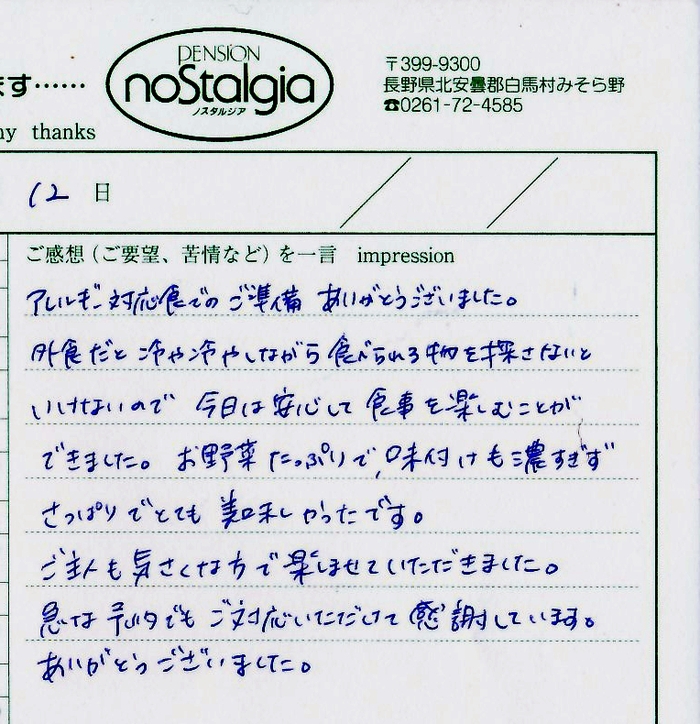 PENSION
ます……
noStalgia
ノスタルジア
ny thanks
〒399-9300
長野県北安曇郡白馬村みそら野
☎0261-72-4585
12 日
ご感想（ご要望、苦情など）を一言 impression
アレルギー対応食でのご準備 ありがとうございました。
外食だと 冷や冷やしながら 食べられる物を探さないと
いけないので 今日は安心して 食事を楽しむことが
できました。お野菜たっぷりで、味付けも濃すぎず
さっぱりでとても 美味しかったです。
ご主人も気さくな方で楽しませていただきました。
急な予約でも ご対応いただけて 感謝しています。
ありがとうございました。